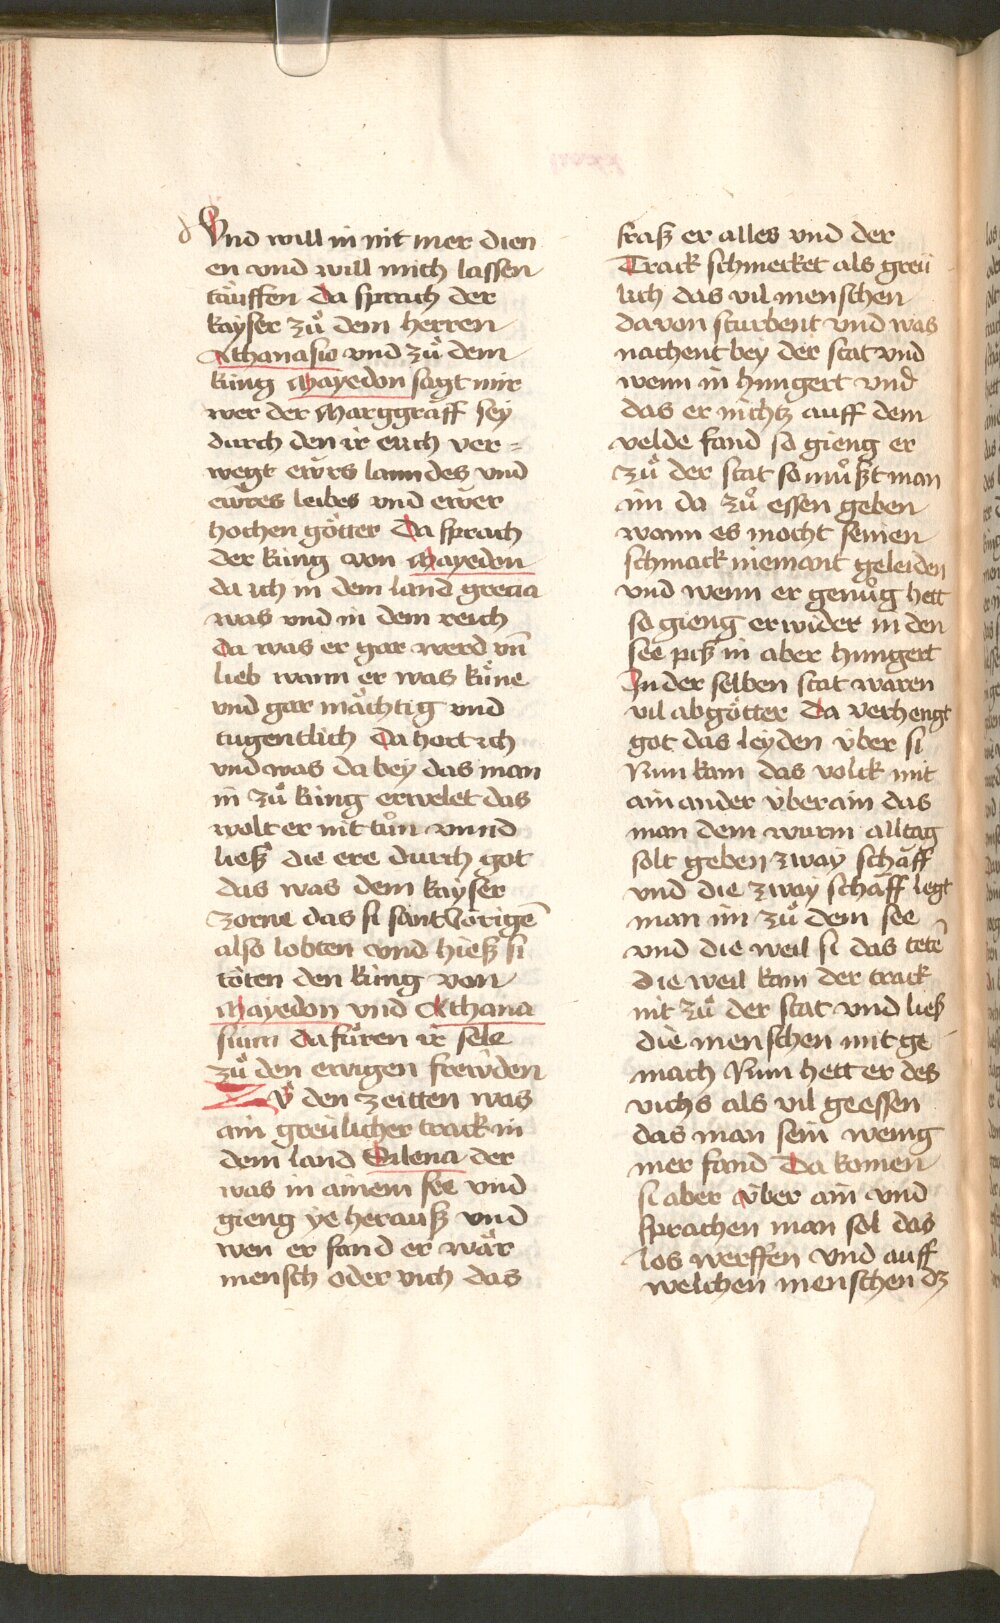 Vnd will in nit mer dien
en vnd will mich lassen
tauffen da sprach der
kayser zuͦ dem herren
Athanasio vnd zuͦ dem
king Mayedon sagt mir
wer der Marggraff sey
durch den ir euch ver =
wegt ewrs lanndes vnd
ewres leibes vnd ewer
hochen götter Da sprach
der king von Mayedon
da ich in dem land grecia
was vnd in dem reich
da was er gar werd vn̄
lieb wann er was küne
vnd gar mächtig vnd
tugentlich Da hort ich
vnd was da bey das man
in zuͦ king erwelet das
wolt er nit tuͦn vnnd
ließ die ere durch got
das was dem kayser
zorne das si sant Jörigē
also lobten vnd hieß si
töten den king von
Mayedon vnd Athana
sium da fuͦren ir sele
zuͦ den ewigen frewden
Zuͦ den zeitten was
ain greülicher track in
dem land Silena der
was in ainem see vnd
gieng ye herauß vnd
wen er fand er wär
mensch oder vich das
fraß er alles vnd der
Track schmecket als greü
lich das vil menschen
dauon sturbent vnd was
nachent bey der stat vnd
wenn in hungert vnd
das er nichtz auff dem
velde fand so gieng er
zuͦ der stat so muͦßt man
im da zuͦ essen geben
wann es mocht seinen
schmack niemant geleiden
vnd wenn er genuͦg hett
so gieng er wider in den
see piß in aber hungert
In der selben stat waren
vil abgötter Da verhengt
got das leyden über si
Nun kam das volck mit
ain ander über ain das
man dem wurm alltag
solt geben zway schäff
vnd die zway schäff legt
man im zuͦ dem see
vnd die weil si das tetē
die weil kam der track
nit zuͦ der stat vnd ließ
die menschen mit ge
mach Nun hett er des
vichs als vil geessen
das man sein wenig
mer fand Da komen
si aber über ain vnd
sprachen man sol das
los werffen vnd auff
welchen menschen dz